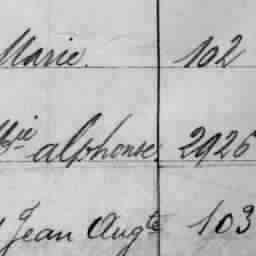 Marie. 102
Mie alphonse. 2926
Jean Augte 103